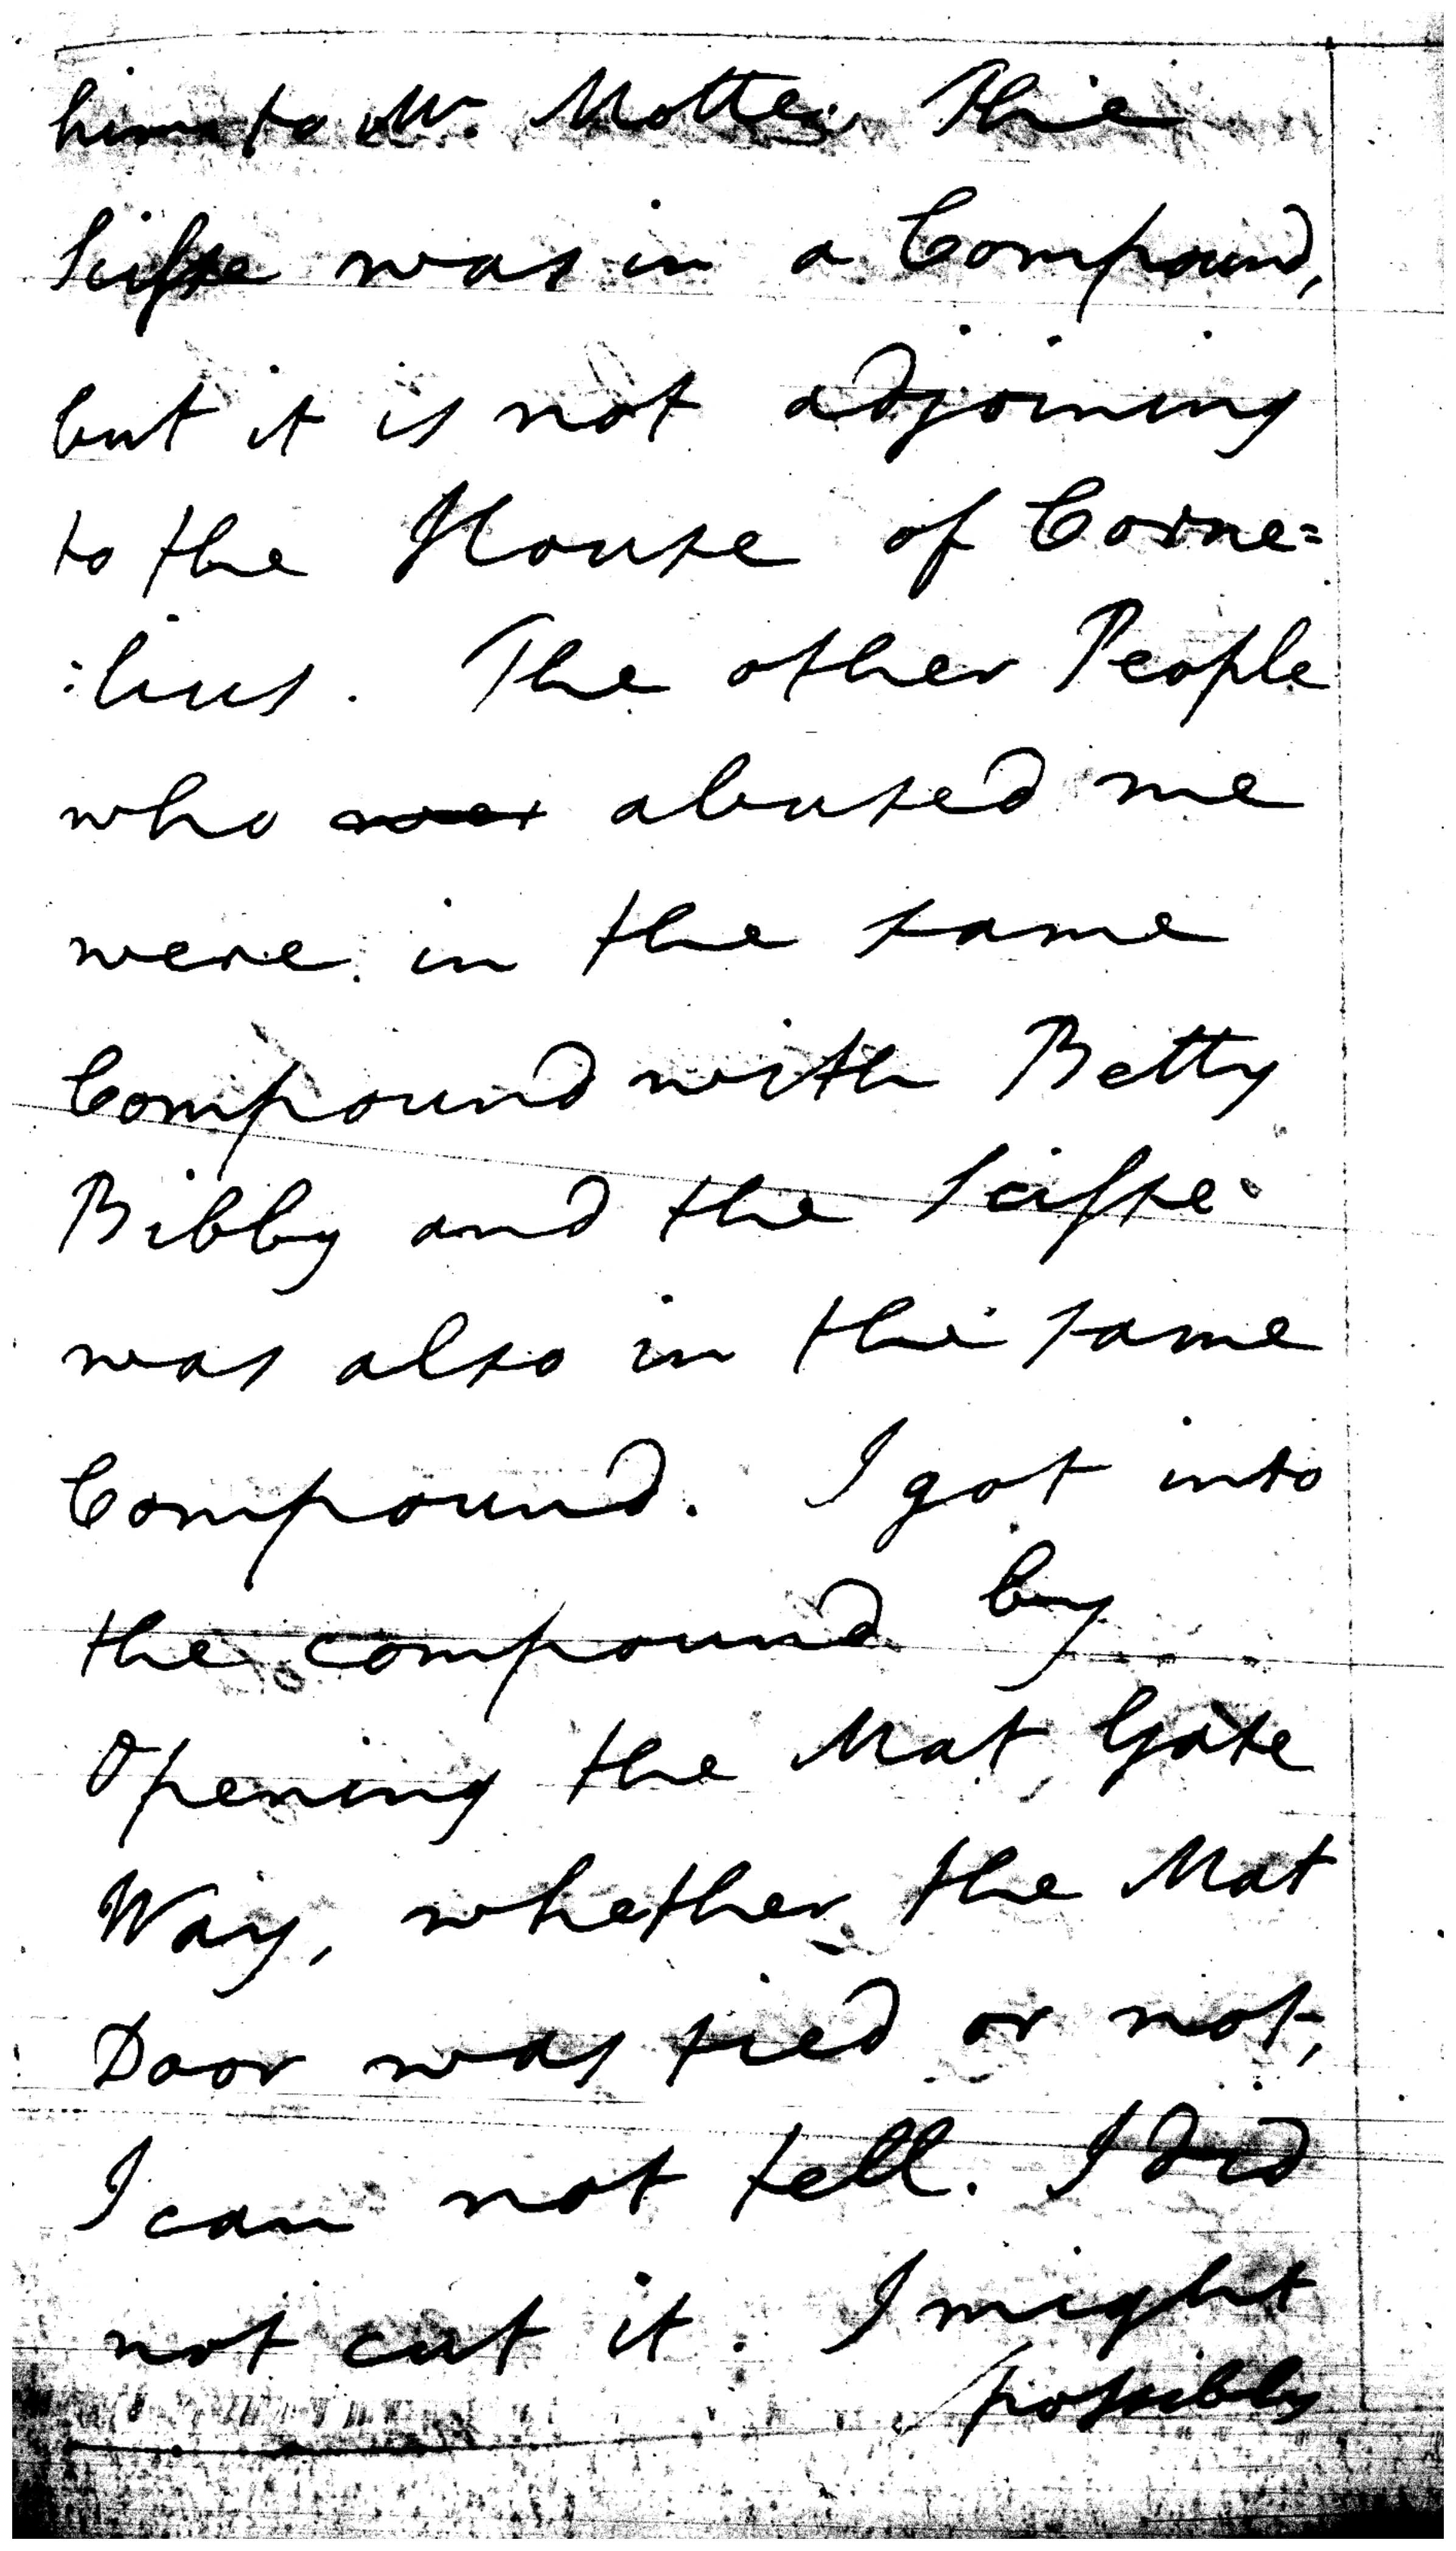 him to Mr. Motte. The
Seifse was in a Compound,
but it is not adjoining
to the House of Corne=
:lius. The other People
who abused me
were in the same
Compound with Betty
Bibby and the Seifse
was also in the same
Compound. I got into
the compound by
Opening the Mat Gate
Way, whether the Mat
Door was tied or not,
I can not tell. I did
not cut it. I might
possibly